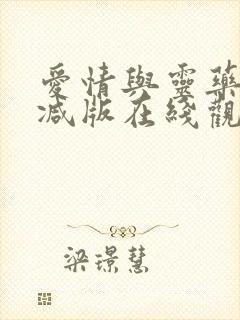 愛情與靈藥
減版在綫觀
梁璟慧